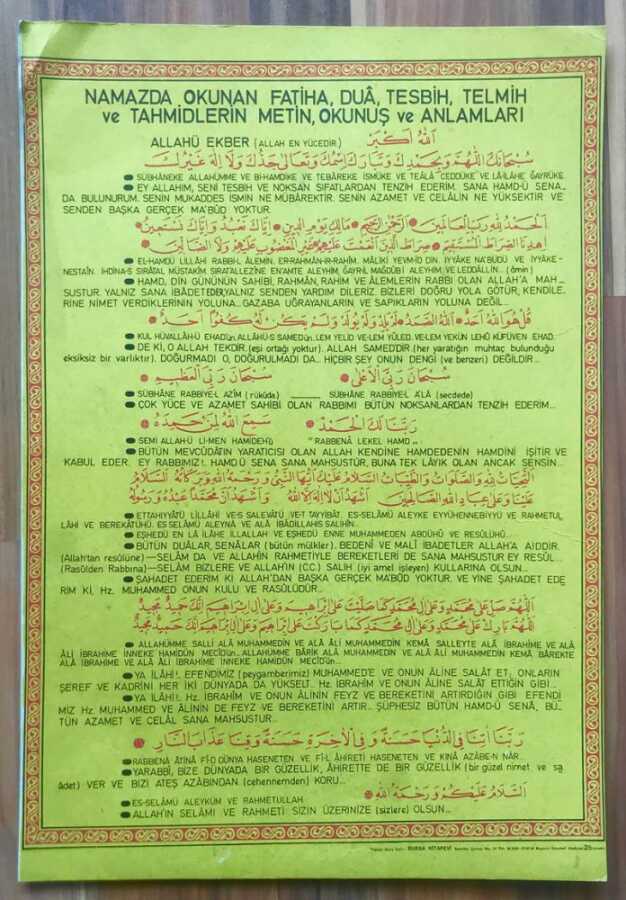 NAMAZDA OKUNAN FATİHA, DUÂ, TESBİH, TELMİH
ve TAHMİDLERİN METİN, OKUNUŞ ve ANLAMLARI
ALLAHÜ EKBER (ALLAH EN YÜCEDİR) اَللهُ اَكْبَرْ
سُبْحَانَكَ اللّٰهُمَّ وَبِحَمْدِكَ وَتَبَارَكَ اسْمُكَ وَتَعَالٰى جَدُّكَ وَلَا اِلٰهَ غَيْرُكَ
● SÜBHÂNEKE ALLAHÜMME VE Bİ-HAMDİKE VE TEBÂREKE İSMÜKE VE TEÂLÂ CEDDÜKE VE LÂ-İLÂHE ĞAYRÜKE
● EY ALLAHIM, SENİ TESBİH VE NOKSAN SIFATLARDAN TENZİH EDERİM. SANA HAMD-Ü SENA..
DA BULUNURUM. SENİN MUKADDES İSMİN NE MÜBÂREKTİR. SENİN AZAMET VE CELÂLİN NE YÜKSEKTİR VE
SENDEN BAŞKA GERÇEK MA'BÛD YOKTUR.
اَلْحَمْدُ لِلّٰهِ رَبِّ الْعَالَمِينَ ● اَلرَّحْمٰنِ الرَّحِيمِ ● مَالِكِ يَوْمِ الدِّينِ ● اِيَّاكَ نَعْبُدُ وَاِيَّاكَ نَسْتَعِينُ ●
اِهْدِنَا الصِّرَاطَ الْمُسْتَقِيمَ ● صِرَاطَ الَّذِينَ اَنْعَمْتَ عَلَيْهِمْ غَيْرِ الْمَغْضُوبِ عَلَيْهِمْ وَلَا الضَّالِّينَ ●
● EL-HAMDÜ LİLLÂHİ RABBİ-L ÂLEMİN. ER-RAHMÂN-IR-RAHİM. MÂLİKİ YEVMİD DİN. İYYÂKE NA'BÜDÜ VE İYYÂKE-
NESTAİN. İHDİNA-S SIRÂTAL MÜSTAKİM, SIRATALLEZİNE EN'AMTE ALEYHİM, ĞAYRİL MAĞDÛBİ ALEYHİM, VE LEDDÂLLİN.. (âmin)
● HAMD, DİN GÜNÜNÜN SAHİBİ, RAHMÂN, RAHİM VE ÂLEMLERİN RABBI OLAN ALLAH'A MAH_
SUSTUR. YALNIZ SANA İBÂDET EDER, YALNIZ SENDEN YARDIM DİLERİZ. BİZLERİ DOĞRU YOLA GÖTÜR, KENDİLE_
RİNE NİMET VERDİKLERİNİN YOLUNA... GAZABA UĞRAYANLARIN VE SAPIKLARIN YOLUNA DEĞİL...
قُلْ هُوَ اللهُ اَحَدٌ ● اَللهُ الصَّمَدُ ● لَمْ يَلِدْ وَلَمْ يُولَدْ وَلَمْ يَكُنْ لَهُ كُفُوًا اَحَدٌ ●
● KUL HÜVALLÂH-Ü EHADÜN. ALLÂHÜ-S SAMEDÜN...LEM YELİD VE-LEM YÛLED. VE-LEM YEKÜN LEHÛ KÜFÜVEN EHAD.
● DE Kİ, O ALLAH TEKDİR. (eşi ortağı yoktur). ALLAH SAMED'DİR (her yaratığın muhtaç bulunduğu
eksiksiz bir varlıktır). DOĞURMADI O, DOĞURULMADI DA... HİÇBİR ŞEY ONUN DENGİ (ve benzeri) DEĞİLDİR...
سُبْحَانَ رَبِّيَ الْاَعْلٰى ● سُبْحَانَ رَبِّيَ الْعَظِيمِ ●
● SÜBHÂNE RABBİYE-L AZÎM (rükûda) ______ SÜBHÂNE RABBİYE-L A'LÂ (secdede)
● ÇOK YÜCE VE AZAMET SAHİBİ OLAN RABBIMI BÜTÜN NOKSANLARDAN TENZİH EDERİM...
رَبَّنَا لَكَ الْحَمْدُ ● سَمِعَ اللهُ لِمَنْ حَمِدَهُ ●
● SEMİ ALLAH-Ü Lİ-MEN HAMİDEHÛ "RABBENÂ LEKEL HAMD...
● BÜTÜN MEVCÛDÂTIN YARATICISI OLAN ALLAH KENDİNE HAMDEDENİN HAMDİNİ İŞİTİR VE
KABUL EDER. EY RABBIMIZ!. HAMD-Ü SENÂ SANA MAHSUSTÛR, BUNA TEK LÂYIK OLAN ANCAK SENSİN...
اَلتَّحِيَّاتُ لِلّٰهِ وَالصَّلَوَاتُ وَالطَّيِّبَاتُ اَلسَّلَامُ عَلَيْكَ اَيُّهَا النَّبِيُّ وَرَحْمَةُ اللهِ وَبَرَكَاتُهُ اَلسَّلَامُ
عَلَيْنَا وَعَلٰى عِبَادِ اللهِ الصَّالِحِينَ اَشْهَدُ اَنْ لَا اِلٰهَ اِلَّا اللهُ وَاَشْهَدُ اَنَّ مُحَمَّدًا عَبْدُهُ وَرَسُولُهُ
● ETTAHİYYÂTÜ LİLLÂHİ VE-S SALEVÂTÜ VE-T TAYYİBÂT. ES-SELÂMÜ ALEYKE EYYÜHENNEBİYYÜ VE RAHMETUL_
LÂHİ VE BEREKÂTÜHÜ. ES-SELÂMÜ ALEYNÂ VE ALÂ İBÂDİLLAHİS SALİHİN...
● EŞHEDÜ EN LÂ İLÂHE İLLALLAH VE EŞHEDÜ ENNE MUHAMMEDEN ABDÜHÛ VE RESÛLÜHÛ...
● BÜTÜN DUÂLAR, SENÂLAR (bütün mülkler). BEDENİ VE MALİ İBADETLER ALLAH'A AİDDİR.
(Allah'tan resûlüne)—SELÂM DA VE ALLAHIN RAHMETİYLE BEREKETLERİ DE SANA MAHSUSTUR EY RESÛL...
(Rasûlden Rabbına)—SELÂM BİZLERE VE ALLAH'IN (C.C.) SALİH (iyi amel işleyen) KULLARINA OLSUN...
● ŞAHADET EDERİM Kİ ALLAH'DAN BAŞKA GERÇEK MA'BÛD YOKTUR. VE YİNE ŞAHADET EDE_
RİM Kİ, Hz. MUHAMMED ONUN KULU VE RASÛLÜDÜR...
اَللّٰهُمَّ صَلِّ عَلٰى مُحَمَّدٍ وَعَلٰى اٰلِ مُحَمَّدٍ كَمَا صَلَّيْتَ عَلٰى اِبْرَاهِيمَ وَعَلٰى اٰلِ اِبْرَاهِيمَ اِنَّكَ حَمِيدٌ مَجِيدٌ
اَللّٰهُمَّ بَارِكْ عَلٰى مُحَمَّدٍ وَعَلٰى اٰلِ مُحَمَّدٍ كَمَا بَارَكْتَ عَلٰى اِبْرَاهِيمَ وَعَلٰى اٰلِ اِبْرَاهِيمَ اِنَّكَ حَمِيدٌ مَجِيدٌ
● ALLAHÜMME SALLİ ALÂ MUHAMMEDİN VE ALÂ ÂLİ MUHAMMEDİN KEMÂ SALLEYTE ALÂ İBRAHİME VE ALÂ
ÂLİ İBRAHİME İNNEKE HAMİDÜN MECİDÜN...ALLAHÜMME BÂRİK ALÂ MUHAMMEDİN VE ALÂ ÂLİ MUHAMMEDİN KEMÂ BÂREKTE
ALÂ İBRAHİME VE ALÂ ÂLİ İBRAHİME İNNEKE HAMİDÜN MECİDÜN...
● YA İLÂHİ!.. EFENDİMİZ (peygamberimiz) MUHAMMED'E VE ONUN ÂLİNE SALÂT ET; ONLARIN
ŞEREF VE KADRİNİ HER İKİ DÜNYADA DA YÜKSELT... Hz. İBRAHİM VE ONUN ÂLİNE SALÂT ETTİĞİN GİBİ...
● YA İLÂHİ!.. Hz. İBRAHİM VE ONUN ÂLİNİN FEYZ VE BEREKETİNİ ARTIRDIĞIN GİBİ EFENDİ
MİZ Hz. MUHAMMED VE ÂLİNİN DE FEYZ VE BEREKETİNİ ARTIR... ŞÜPHESİZ BÜTÜN HAMD-Ü SENÂ, BÜ_
TÜN AZAMET VE CELÂL SANA MAHSUSTUR...
رَبَّنَا اٰتِنَا فِى الدُّنْيَا حَسَنَةً وَفِى الْاٰخِرَةِ حَسَنَةً وَقِنَا عَذَابَ النَّارِ ●
● RABBENÂ ÂTİNÂ Fİ-D DÜNYA HASENETEN VE Fİ-L ÂHİRETİ HASENETEN VE KINÂ AZÂBE-N NÂR...
● YARABBİ, BİZE DÜNYADA BİR GÜZELLİK, ÂHİRETTE DE BİR GÜZELLİK (bir güzel nimet ve sa
âdet) VER VE BİZİ ATEŞ AZÂBINDAN (cehennemden) KORU...
اَلسَّلَامُ عَلَيْكُمْ وَرَحْمَةُ اللهِ ●
● ES-SELÂMÜ ALEYKÜM VE RAHMETULLAH
● ALLAH'IN SELÂMI VE RAHMETİ SİZİN ÜZERİNİZE (sizlere) OLSUN...
BURSA KİTAPEVİ